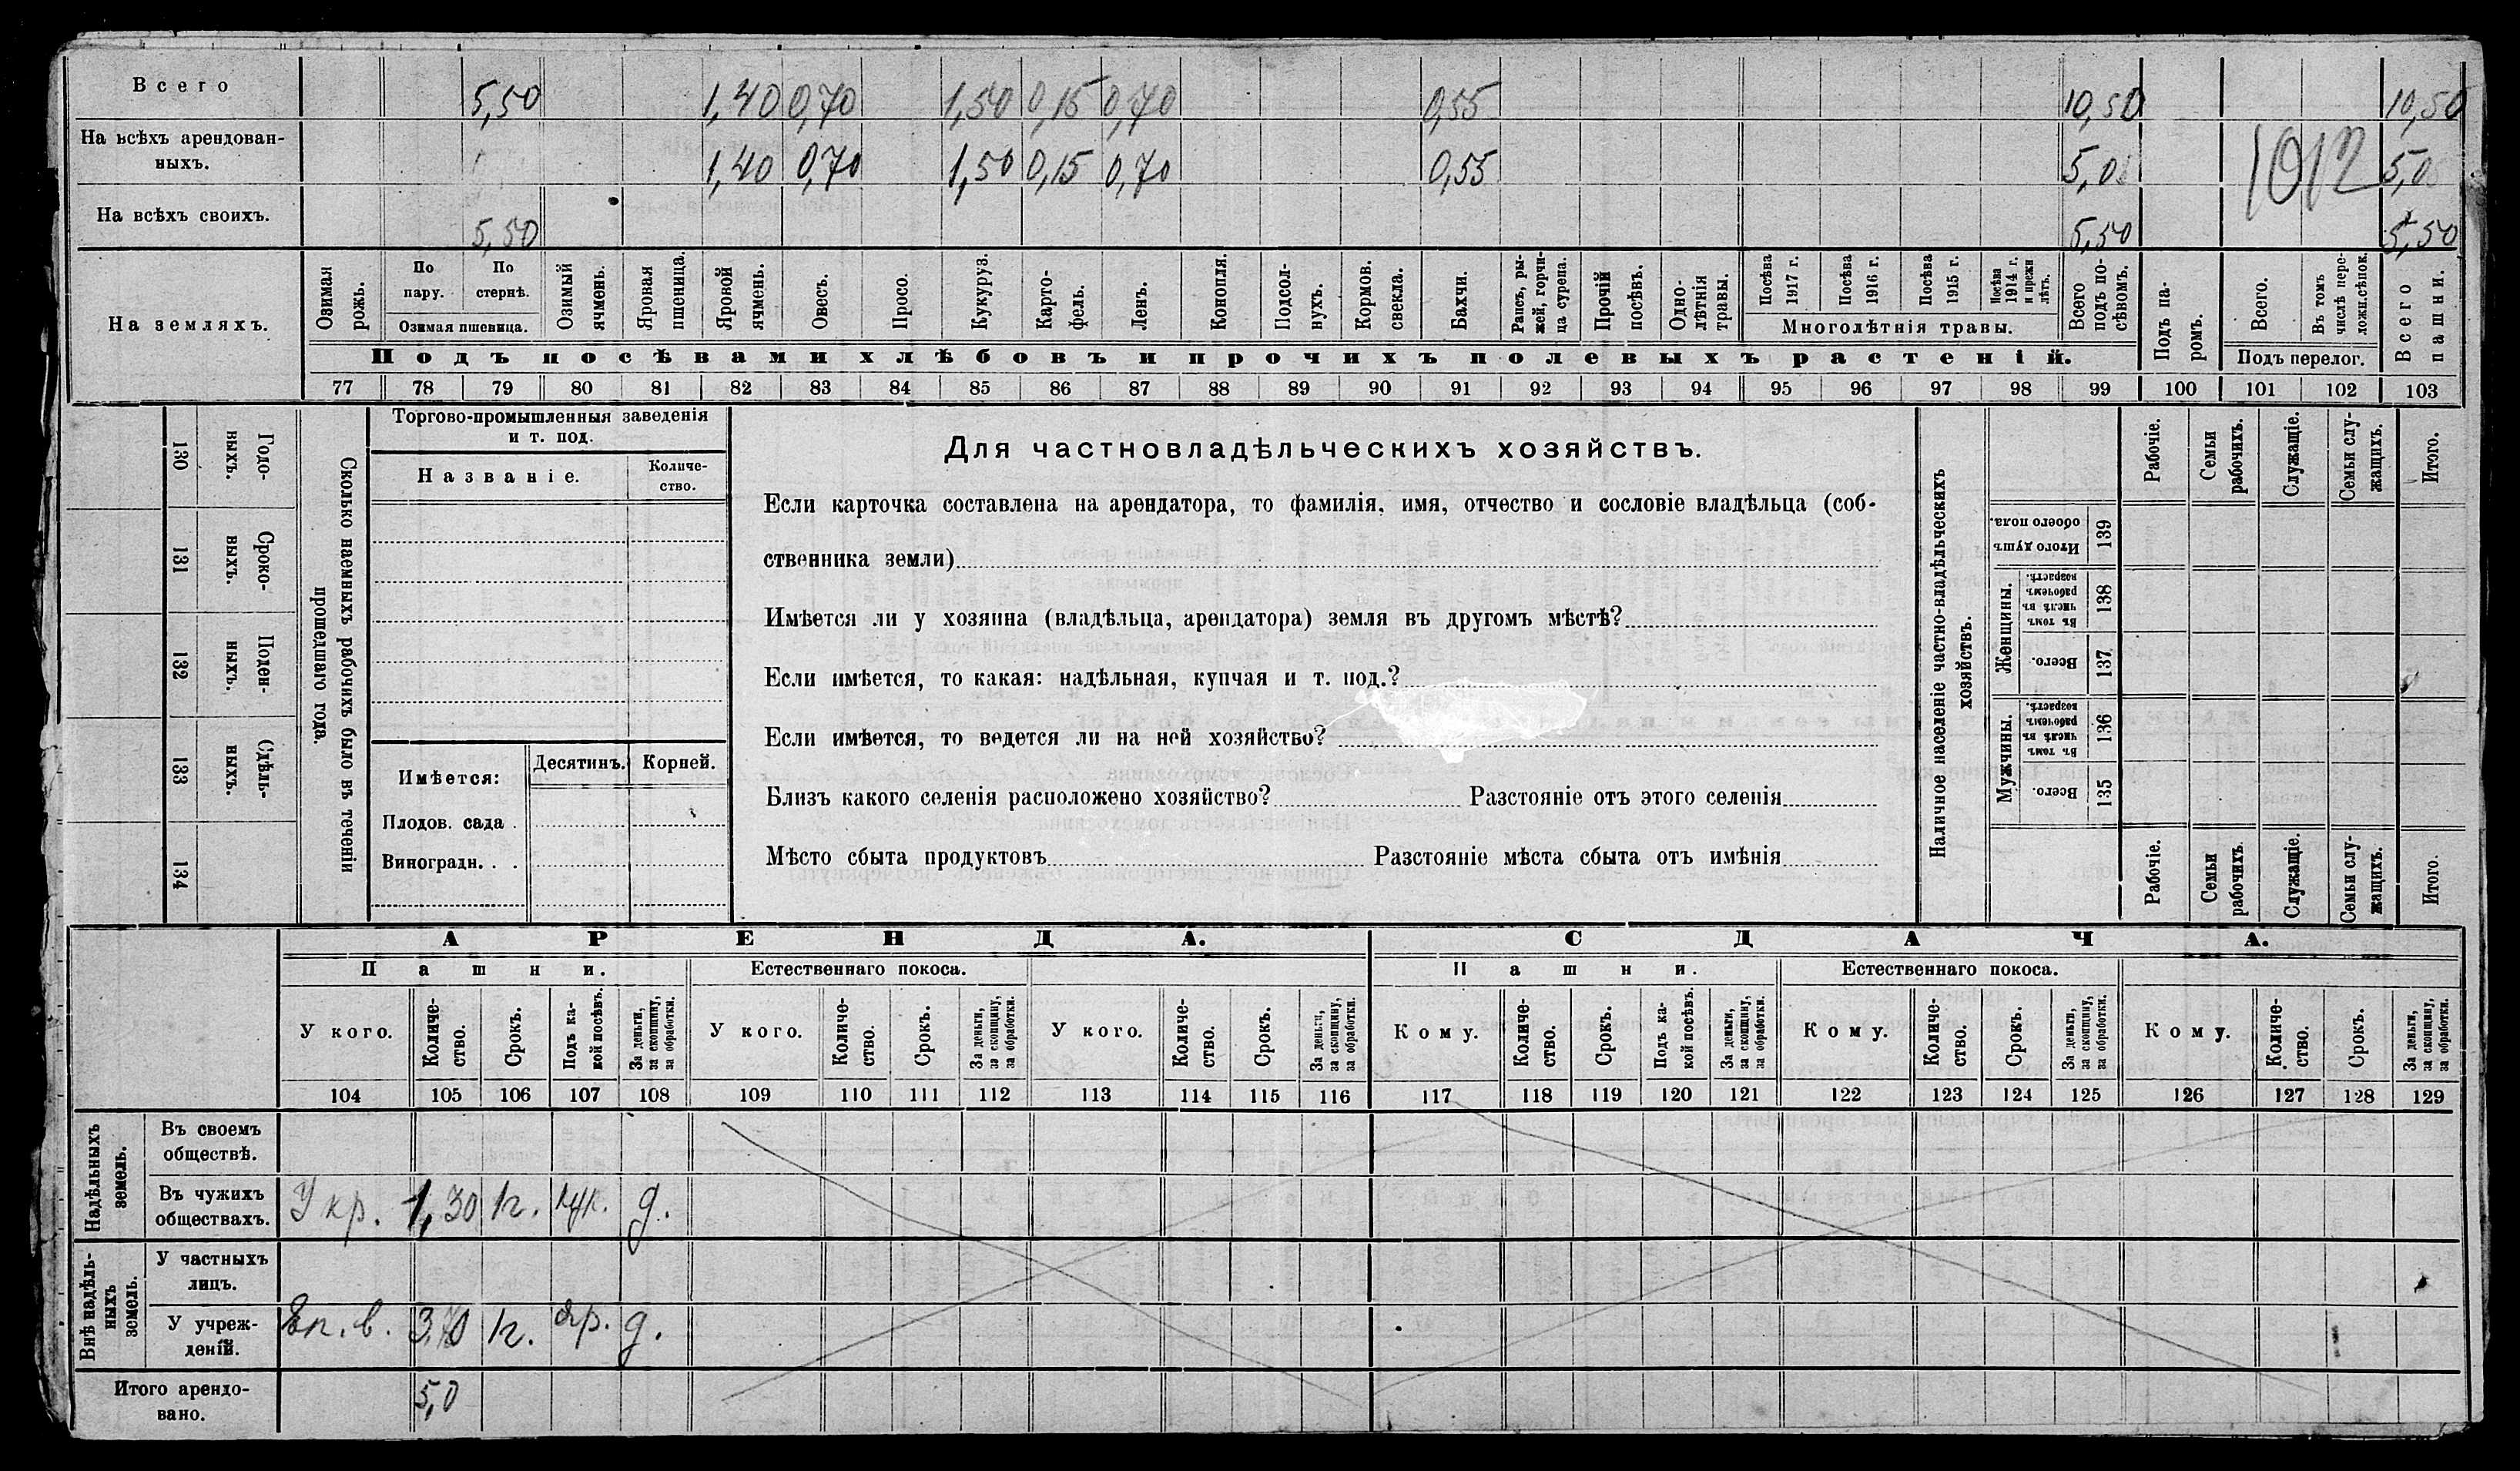 Всего 5,50 1,40 0,70 1,50 0,15 0,70 0,55 10,50 10,50
На всѣхъ арендован-
ныхъ. 1,40 0,70 1,50 0,15 0,70 0,55 5,0 1012 5,0
На всѣхъ своихъ. 5,50 5,50 5,50
На земляхъ.
Озимая рожь.
По пару.
По стернѣ.
Озимая пшеница.
Озимый ячмень.
Яровая пшеница.
Яровой ячмень.
Овесъ.
Просо.
Кукуруз.
Карто-
фель.
Ленъ.
Конопля.
Подсол-
нухъ.
Кормов. свекла.
Бахчи.
Рапсъ, ры-
жей, горчи-
ца сурепа.
Прочій посѣвъ.
Одно-
лѣтнія травы.
Посѣва 1917 г.
Посѣва 1916 г.
Посѣва 1915 г.
Посѣва 1914 г. и прежн лѣтъ.
Многолѣтнія травы.
Всего подъ по-
сѣвомъ.
Подъ па-
ромъ.
Всего.
Въ томъ числѣ пере-
ложн.сѣнок.
Подъ перелог.
Всего пашни.
Подъ посѣвами хлѣбовъ и прочихъ полевыхъ растеній.
77 78 79 80 81 82 83 84 85 86 87 88 89 90 91 92 93 94 95 96 97 98 99 100 101 102 103
Сколько наемныхъ рабочихъ было въ теченіи
прошедшаго года.
Годо-
выхъ.
130
Сроко-
выхъ.
131
Поден-
ныхъ.
132
Сдѣль-
ныхъ.
133
134
Торгово-промышленныя заведенія
и т. под.
Названіе.
Количе-
ство.
Имѣется:
Десятинъ.
Корней.
Плодов. сада .
Виноградн. . .
Для частновладѣльческихъ хозяйствъ.
Если карточка составлена на арендатора, то фамилія, имя, отчество и сословіе владѣльца (соб-
ственника земли)
Имѣется ли у хозяина (владѣльца, арендатора) земля въ другомъ мѣстѣ?
Если имѣется, то какая: надѣльная, купчая и т. под.?
Если имѣется, то ведется ли на ней хозяйство?
Близъ какого селенія расположено хозяйство? Разстояніе отъ этого селенія
Мѣсто сбыта продуктовъ Разстояніе мѣста сбыта отъ имѣнія
Наличное населеніе частно-владѣльческихъ
хозяйствъ.
Рабочіе.
Семьи рабочихъ.
Служащіе.
Семьи слу-
жащихъ.
Итого.
Итого душъ обоего пола.
139
Женщины.
Въ томъ числѣ въ рабочемъ возрастѣ.
138
Всего.
137
Мужчины.
Въ томъ числѣ въ рабочемъ возрастѣ.
136
Всего.
135
Рабочіе.
Семьи рабочихъ.
Служащіе.
Семьи слу-
жащихъ.
Итого.
АРЕНДА.
СДАЧА.
Пашни.
Естественнаго покоса.
Пашни.
Естественнаго покоса.
У кого.
Количе-
ство.
Срокъ.
Подъ ка-
кой посѣвъ.
За деньги, за скопщину, за обработки.
У кого.
Количе-
ство.
Срокъ.
За деньги, за скопщину, за обработки.
У кого.
Количе-
ство.
Срокъ.
За деньги, за скопщину, за обработки.
Кому.
Количе-
ство.
Срокъ.
Подъ ка-
кой посѣвъ.
За деньги, за скопщину, за обработки.
Кому.
Количе-
ство.
Срокъ.
За деньги, за скопщину, за обработки.
Кому.
Количе-
ство.
Срокъ.
За деньги, за скопщину, за обработки.
104 105 106 107 108 109 110 111 112 113 114 115 116 117 118 119 120 121 122 123 124 125 126 127 128 129
Надѣльныхъ земель.
Въ своемъ
обществѣ.
Въ чужихъ
обществахъ. У кр. 1,30 1г. кук. д.
Внѣ надѣль-
ныхъ земель.
У частныхъ
лицъ.
У учреж-
деній. 1г. яр. д.
Итого арендо-
вано. 5,0